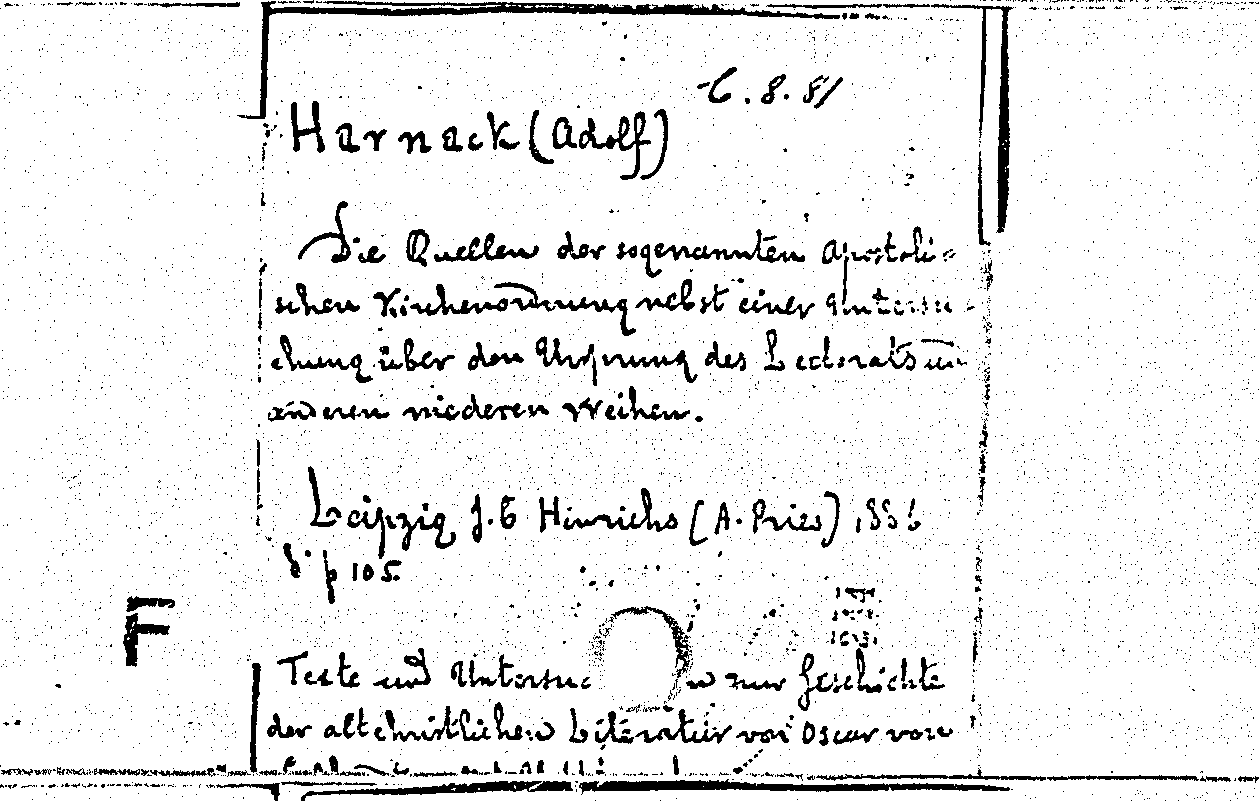 6.8.81
Harnack (Adolf)
Die Quellen der sogenannten apostoli-
schen Kirchenordnung nebst einer Untersu-
chung über den Ursprung des Lectorats und
anderen niederen Weihen.
Leipzig J. C Hinrichs (A. Pries) 1886
8° p 105.
F
Texte und Untersuc en zur Geschichte
der altchristlichen Literatur von Oscar von